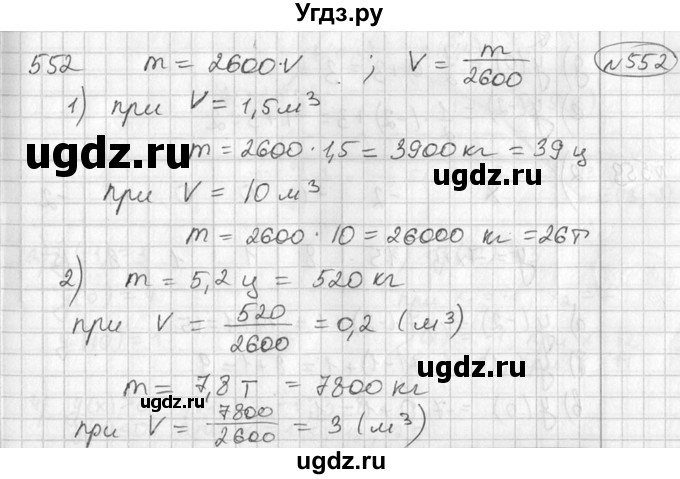 Угдз.ру
552 m = 2600·V ; V = m/2600 №552
1) при V = 1,5 м³
m = 2600 · 1,5 = 3900 кг = 39 ц
при V = 10 м³
m = 2600 · 10 = 26000 кг = 26т
2) m = 5,2 ц = 520 кг
при V = 520/2600 = 0,2 (м³)
m = 7,8 т = 7800 кг
при V = 7800/2600 = 3 (м³)
ugdz.ru
ugdz.ru
ugdz.ru
ugdz.ru
ugdz.ru
ugdz.ru